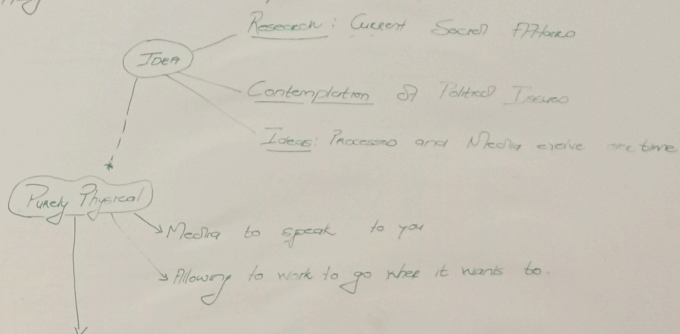 Research: Current Social Affairs
IDEA
Contemplation of Political Issues
Ideas: Processes and Media evolve time
Purely Physical
Media to speak to you
Allowing to work to go where it wants to.